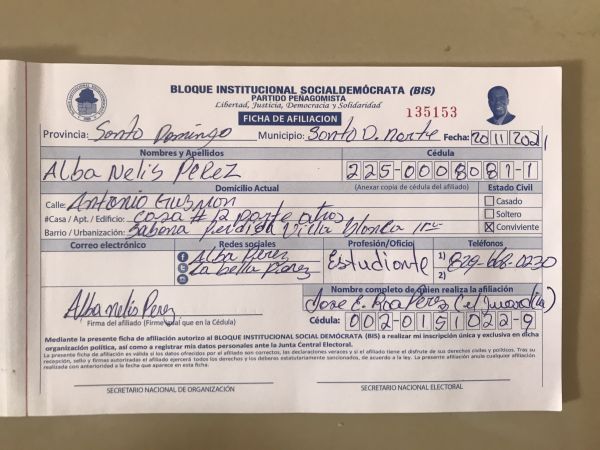 BLOQUE INSTITUCIONAL SOCIALDEMÓCRATA (BIS)
PARTIDO PEÑAGOMISTA
Libertad, Justicia, Democracia y Solidaridad
135153
FICHA DE AFILIACION
Provincia: Santo Domingo Municipio: Santo D. norte Fecha: 20 11 2021
Nombres y Apellidos Cédula
Alba Nelis Perez 225-0008081-1
Domicilio Actual (Anexar copia de cédula del afiliado) Estado Civil
Calle: Antonio Gusmon Casado
#Casa / Apt. / Edificio: casa # 2 parte atros Soltero
Barrio / Urbanización: Sabana Perdida Villa Blanca X Conviviente
Correo electrónico Redes sociales Profesión/Oficio Teléfonos
Alba Perez Estudiante 1) 829-668-0230
La bella Perez 2)
Nombre completo de quien realiza la afiliación
Alba nelis Perez Jose E. Roa Perez
Firma del afiliado (Firme igual que en la Cédula) Cédula: 002-0151022-9
Mediante la presente ficha de afiliación autorizo al BLOQUE INSTITUCIONAL SOCIAL DEMÓCRATA (BIS) a realizar mi inscripción única y exclusiva en dicha
organización política, así como a registrar mis datos personales ante la Junta Central Electoral.
La presente ficha de afiliación es válida si los datos ofrecidos por el afiliado son correctos, las declaraciones veraces y si el afiliado tiene el disfrute de sus derechos civiles y políticos. Tras su
recepción, sello y firmas autorizadas el afiliado ejercerá todos los derechos y los deberes estatutariamente sancionados, de acuerdo a la ley. La presente afiliación anula cualquier afiliación
realizada con anterioridad a la fecha que aparece en esta ficha.
SECRETARIO NACIONAL DE ORGANIZACIÓN SECRETARIO NACIONAL ELECTORAL